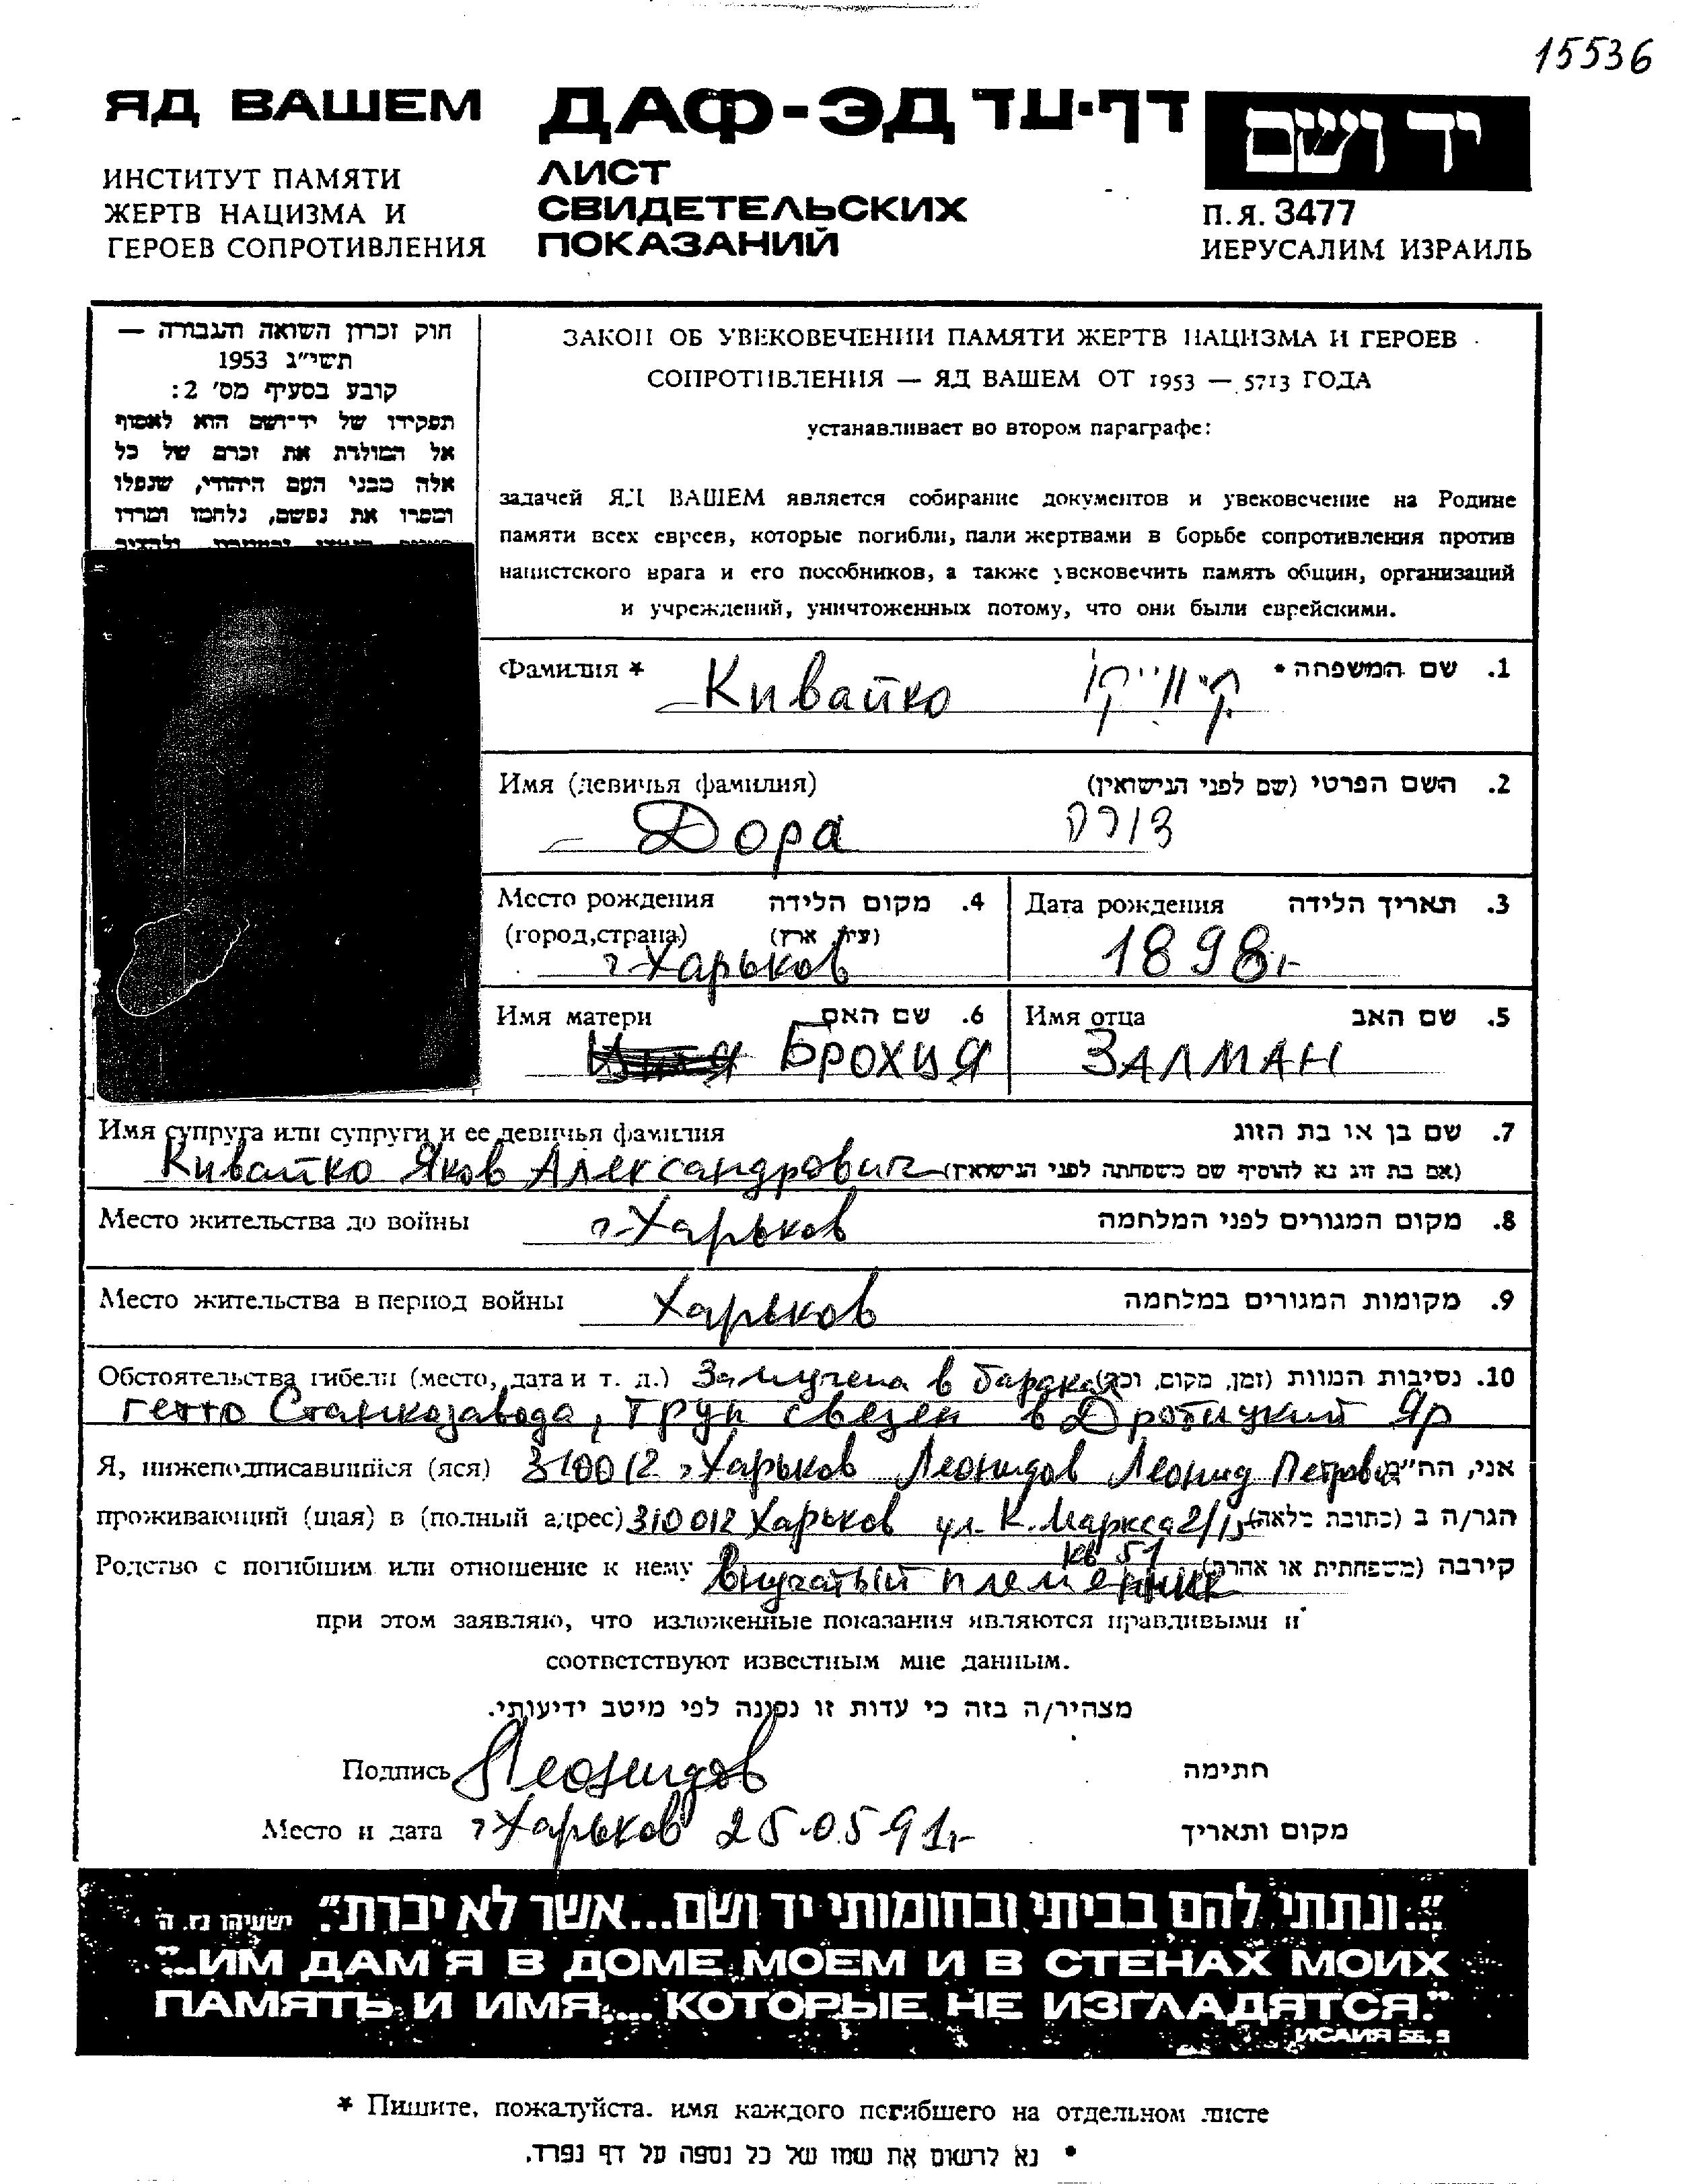 15536
ЯД ВАШЕМ
ДАФ-ЭД דף-עד
יד ושם
ИНСТИТУТ ПАМЯТИ
ЖЕРТВ НАЦИЗМА И
ГЕРОЕВ СОПРОТИВЛЕНИЯ
ЛИСТ
СВИДЕТЕЛЬСКИХ
ПОКАЗАНИЙ
П.Я. 3477
ИЕРУСАЛИМ ИЗРАИЛЬ
חוק זכרון השואה והגבורה —
תשי״ג 1953
קובע בסעיף מס׳ 2:
תפקידו של יד־ושם הוא לאסוף
אל המולדת את זכרם של כל
אלה מבני העם היהודי, שנפלו
ומסרו את נפשם, נלחמו ומרדו
ЗАКОН ОБ УВЕКОВЕЧЕНИИ ПАМЯТИ ЖЕРТВ НАЦИЗМА И ГЕРОЕВ
СОПРОТИВЛЕНИЯ — ЯД ВАШЕМ ОТ 1953 — 5713 ГОДА
устанавливает во втором параграфе:
задачей ЯД ВАШЕМ является собирание документов и увековечение на Родине
памяти всех евреев, которые погибли, пали жертвами в борьбе сопротивления против
нацистского врага и его пособников, а также увековечить память общин, организаций
и учреждений, уничтоженных потому, что они были еврейскими.
Фамилия * Кивайко קיווייקו שם המשפחה * .1
Имя (девичья фамилия) השם הפרטי (שם לפני הנישואין) .2
Дора דורה
Место рождения מקום הלידה .4
(город,страна) (עיר, ארץ)
г. Харьков
Дата рождения תאריך הלידה .3
1898г.
Имя матери שם האם .6
Брохця
Имя отца שם האב .5
Залман
Имя супруга или супруги и ее девичья фамилия שם בן או בת הזוג .7
Кивайко Яков Александрович (אם בת זוג נא להוסיף שם משפחתה לפני הנישואין)
Место жительства до войны г. Харьков מקום המגורים לפני המלחמה .8
Место жительства в период войны Харьков מקומות המגורים במלחמה .9
Обстоятельства гибели (место, дата и т. д.) Замучена в бараках נסיבות המוות (זמן, מקום, וכו׳) .10
гетто Станкозавода, труп свезен в Дробицкий Яр
Я, нижеподписавшийся (яся) 310012 г. Харьков Леонидов Леонид Петрович אני, הח״מ
проживающий (щая) в (полный адрес) 310012 Харьков ул. К. Маркса 2/15 הגר/ה ב (כתובת מלאה)
кв 51
Родство с погибшим или отношение к нему внучатый племянник קירבה (משפחתית או אחרת)
при этом заявляю, что изложенные показания являются правдивыми и
соответствуют известным мне данным.
מצהיר/ה בזה כי עדות זו נכונה לפי מיטב ידיעותי.
Подпись Леонидов חתימה
Место и дата г. Харьков 25.05.91г. מקום ותאריך
״...ונתתי להם בביתי ובחומותי יד ושם...אשר לא יכרת״. ישעיהו נו, ה
"...ИМ ДАМ Я В ДОМЕ МОЕМ И В СТЕНАХ МОИХ
ПАМЯТЬ И ИМЯ,... КОТОРЫЕ НЕ ИЗГЛАДЯТСЯ."
ИСАИЯ 56. 5
* Пишите, пожалуйста. имя каждого погибшего на отдельном листе
* נא לרשום את שמו של כל נספה על דף נפרד.